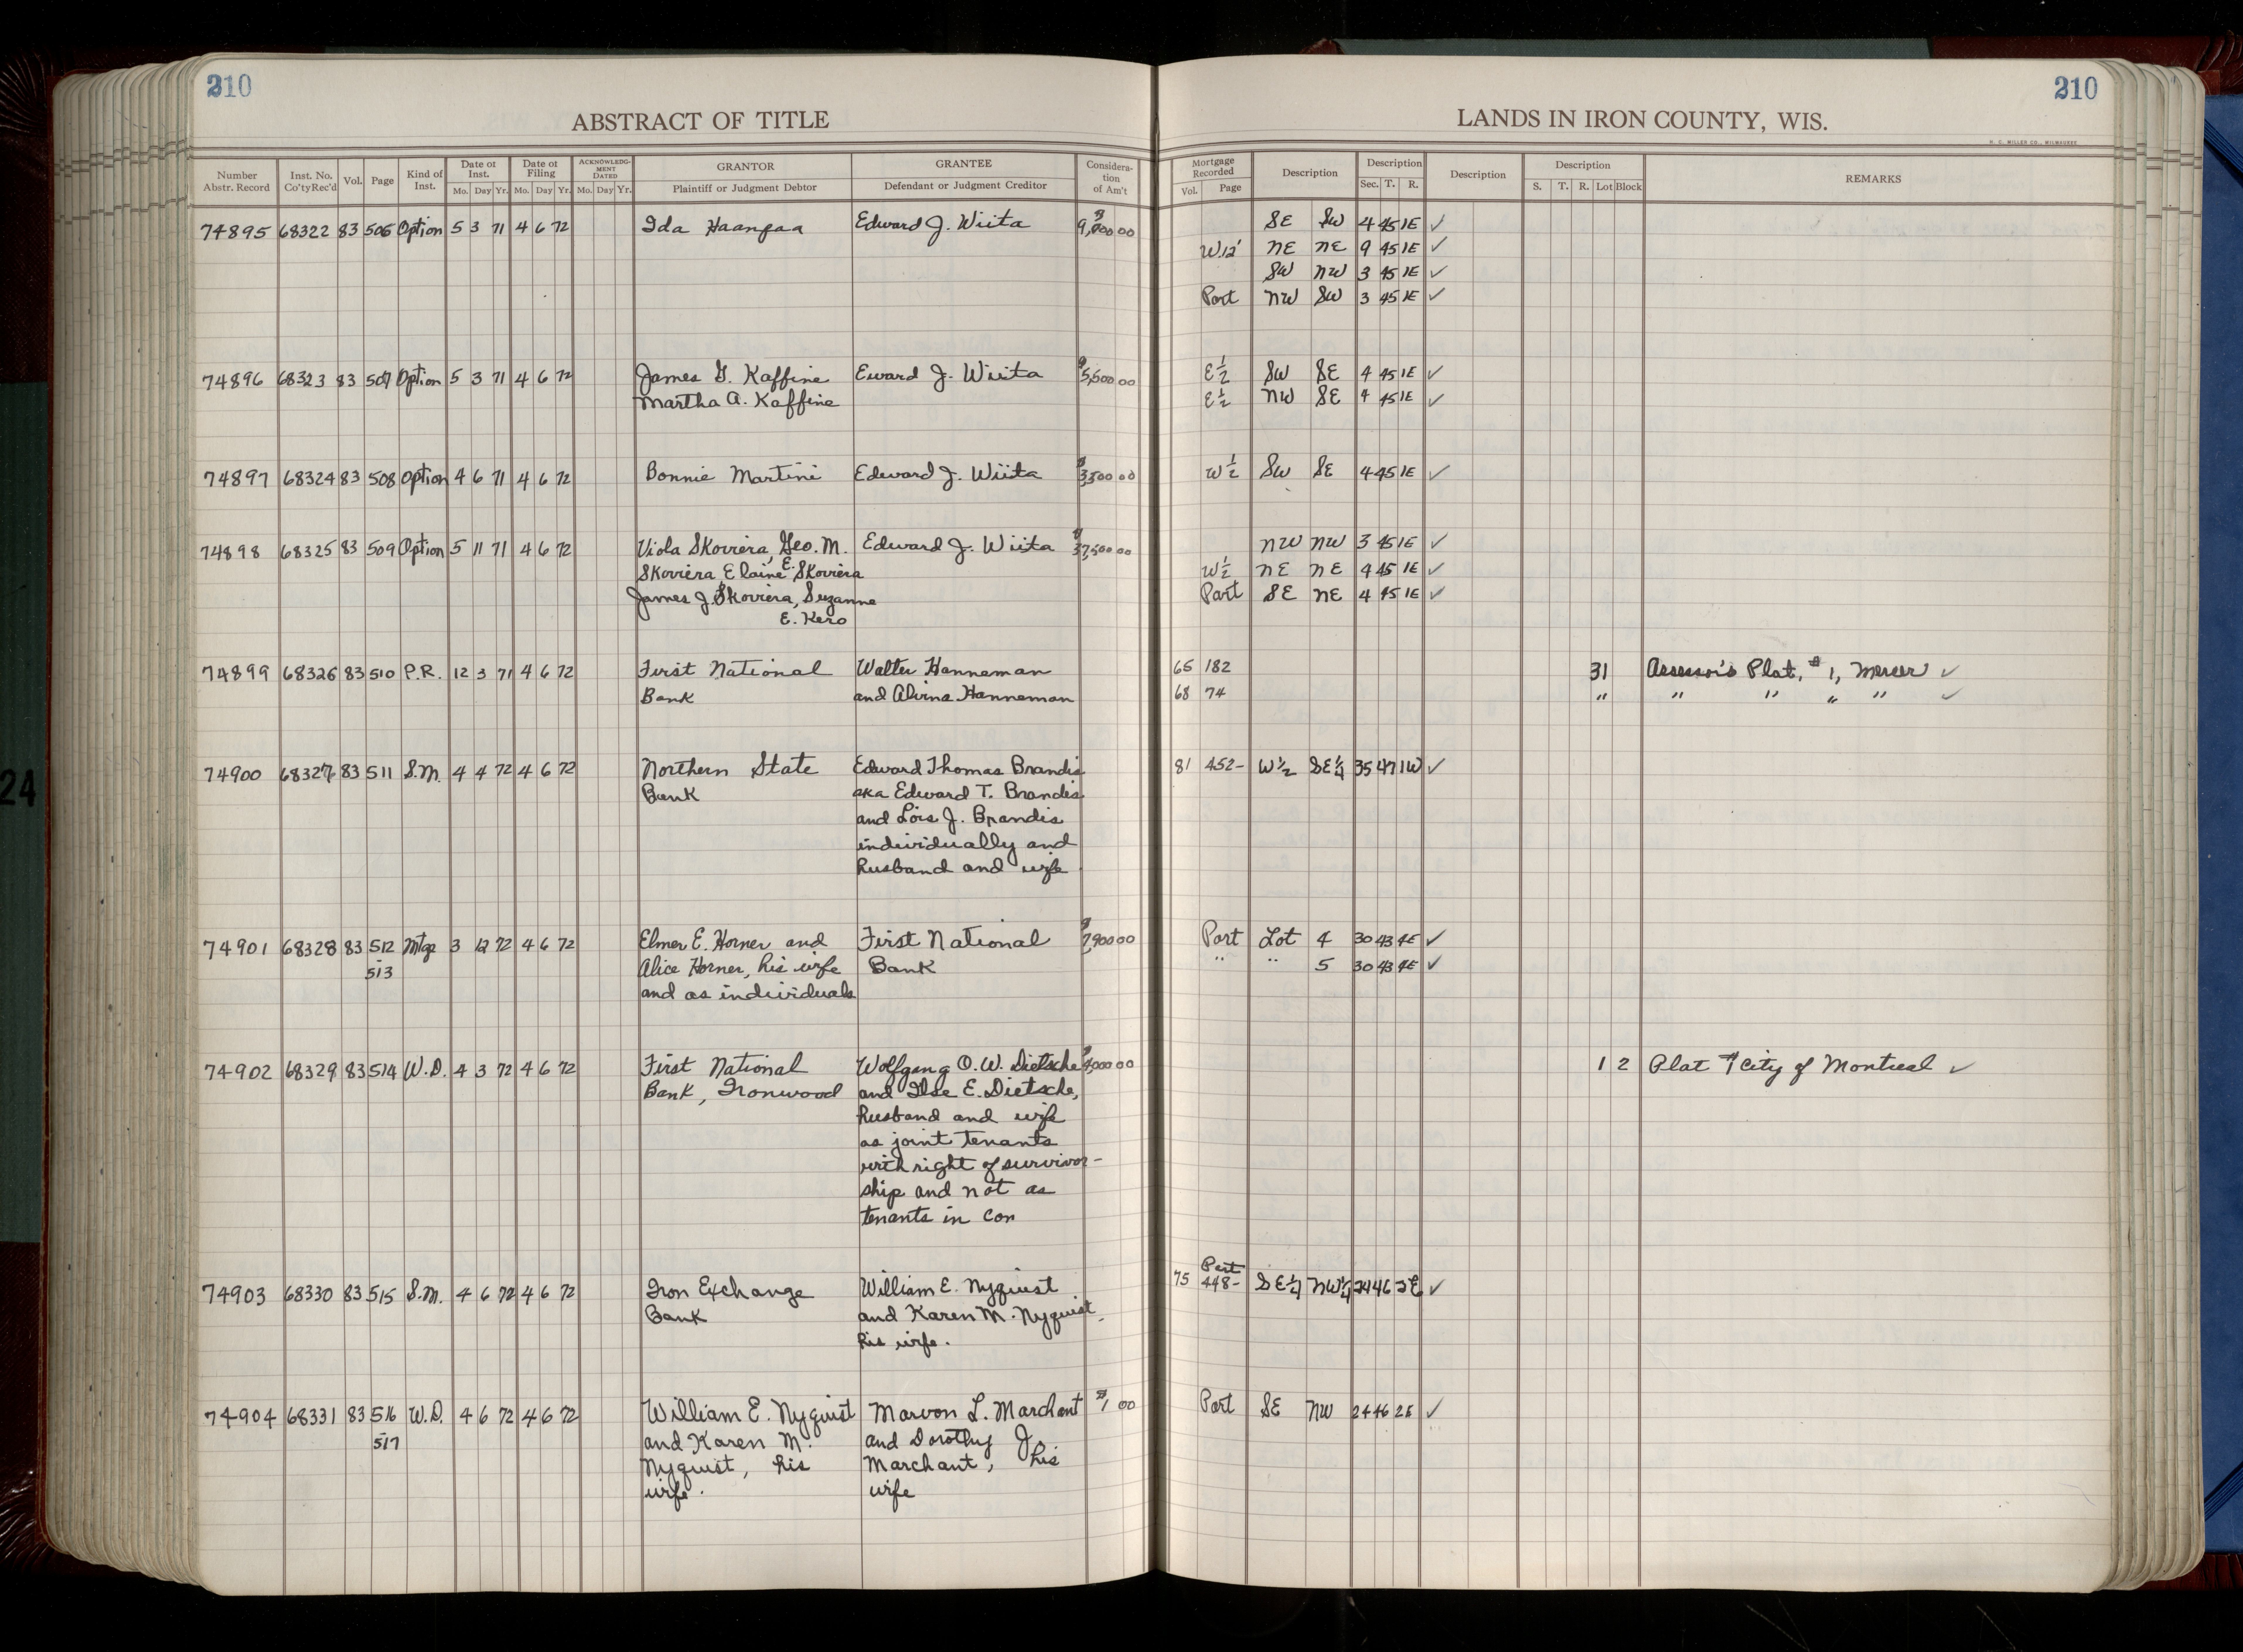 210
210
ABSTRACT OF TITLE
LANDS IN IRON COUNTY, WIS.
H. C. MILLER CO., MILWAUKEE
Number Abstr. Record Inst. No. Co'ty Rec'd Vol. Page Kind of Inst. Date of Inst. Mo. Day Yr. Date of Filing Mo. Day Yr. ACKNOWLEDGMENT DATED Mo. Day Yr. GRANTOR Plaintiff or Judgment Debtor GRANTEE Defendant or Judgment Creditor Consideration of Am't Mortgage Recorded Vol. Page Description Description Sec. T. R. Description Description S. T. R. Lot Block REMARKS
74895 68322 83 506 Option 5 3 71 4 6 72 Ida Haanpaa Edward J. Wiita $9,000 00 SE SW 4 45 1E ✓
W12' NE NE 9 45 1E ✓
SW NW 3 45 1E ✓
Part NW SW 3 45 1E ✓
74896 68323 83 507 Option 5 3 71 4 6 72 James G. Kaffine Eward J. Wiita $5,500 00 E½ SW SE 4 45 1E ✓
Martha A. Kaffine E½ NW SE 4 45 1E ✓
74897 68324 83 508 Option 4 6 71 4 6 72 Bonnie Martini Edward J. Wiita $3,500 00 W½ SW SE 4 45 1E ✓
74898 68325 83 509 Option 5 11 71 4 6 72 Viola Skoviera, Geo. M. Edward J. Wiita $37,500 00 NW NW 3 45 1E ✓
Skoviera, Elaine E. Skoviera W½ NE NE 9 45 1E ✓
James J. Skoviera, Suzanne Part SE NE 4 45 1E ✓
E. Kero
74899 68326 83 510 P.R. 12 3 71 4 6 72 First National Walter Hanneman 65 182 31 Assessor's Plat, #1, Mercer ✓
Bank and Alvina Hanneman 68 74 " " " " " ✓
74900 68327 83 511 S.M. 4 4 72 4 6 72 Northern State Edward Thomas Brandis 81 452- W½ SE¼ 35 47 1W ✓
Bank aka Edward T. Brandis
and Lois J. Brandis
individually and
husband and wife
74901 68328 83 512 Mtge 3 12 72 4 6 72 Elmer E. Horner and First National $7,900 00 Part Lot 4 30 43 4E ✓
-513 Alice Horner, his wife Bank " " 5 30 43 4E ✓
and as individuals
74902 68329 83 514 W.D. 4 3 72 4 6 72 First National Wolfgang O. W. Dietsche $4,000 00 1 2 Plat of City of Montreal ✓
Bank, Ironwood and Ilse E. Dietsche,
husband and wife
as joint tenants
with right of survivor-
ship and not as
tenants in con
Part
74903 68330 83 515 S.M. 4 6 72 4 6 72 Iron Exchange William E. Nyquist 75 448- SE¼ NW¼ 24 46 2E ✓
Bank and Karen M. Nyquist,
his wife.
74904 68331 83 516 W.D. 4 6 72 4 6 72 William E. Nyquist Marvon L. Marchant $1 00 Part SE NW 24 46 2E ✓
-517 and Karen M. and Dorothy J.
Nyquist, his Marchant, his
wife. wife
24